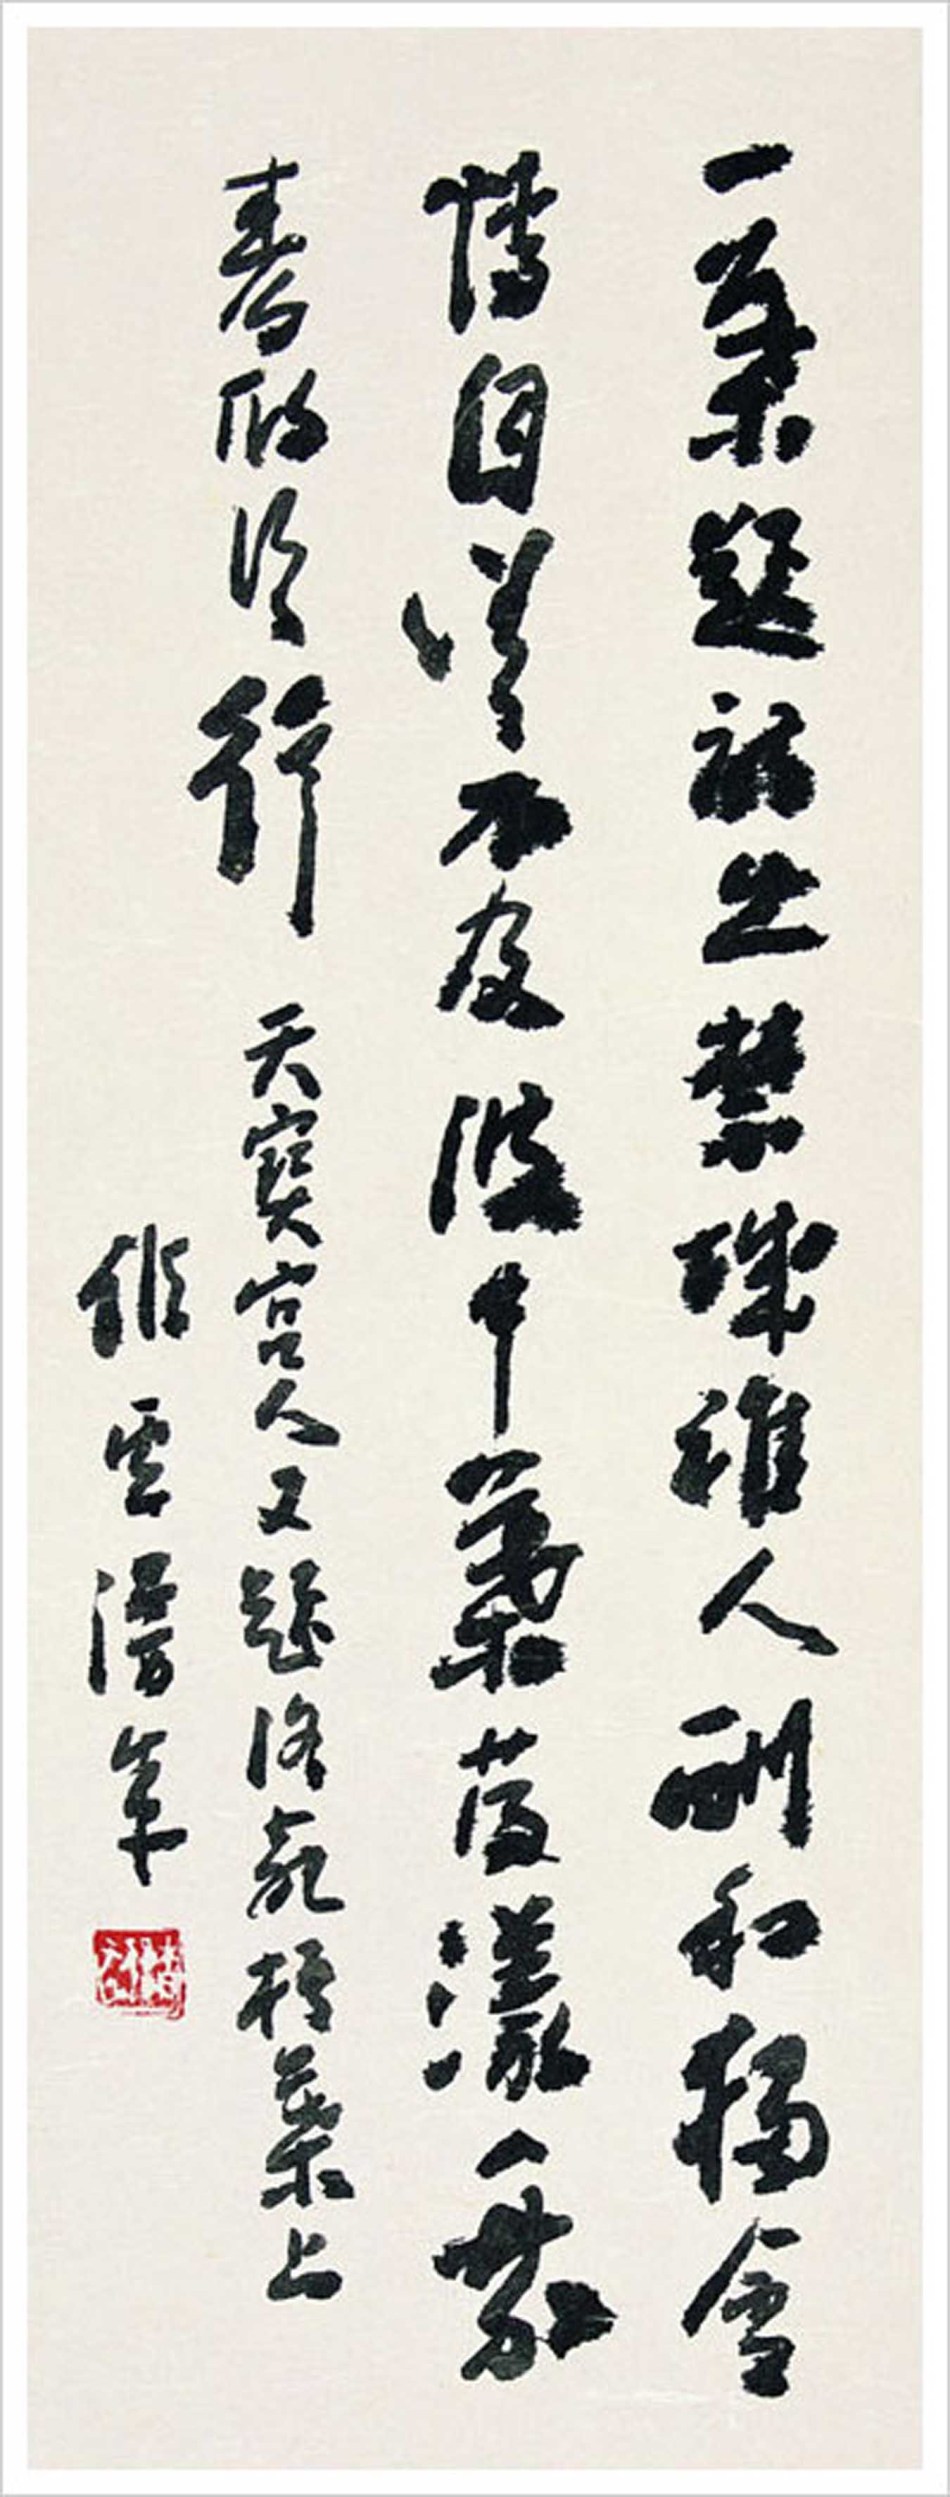 一葉題詩出禁城誰人酬和獨含
情自嗟不及波中葉蕩漾乘
春取次行 天寶宮人又題洛苑梧葉上
雲 年